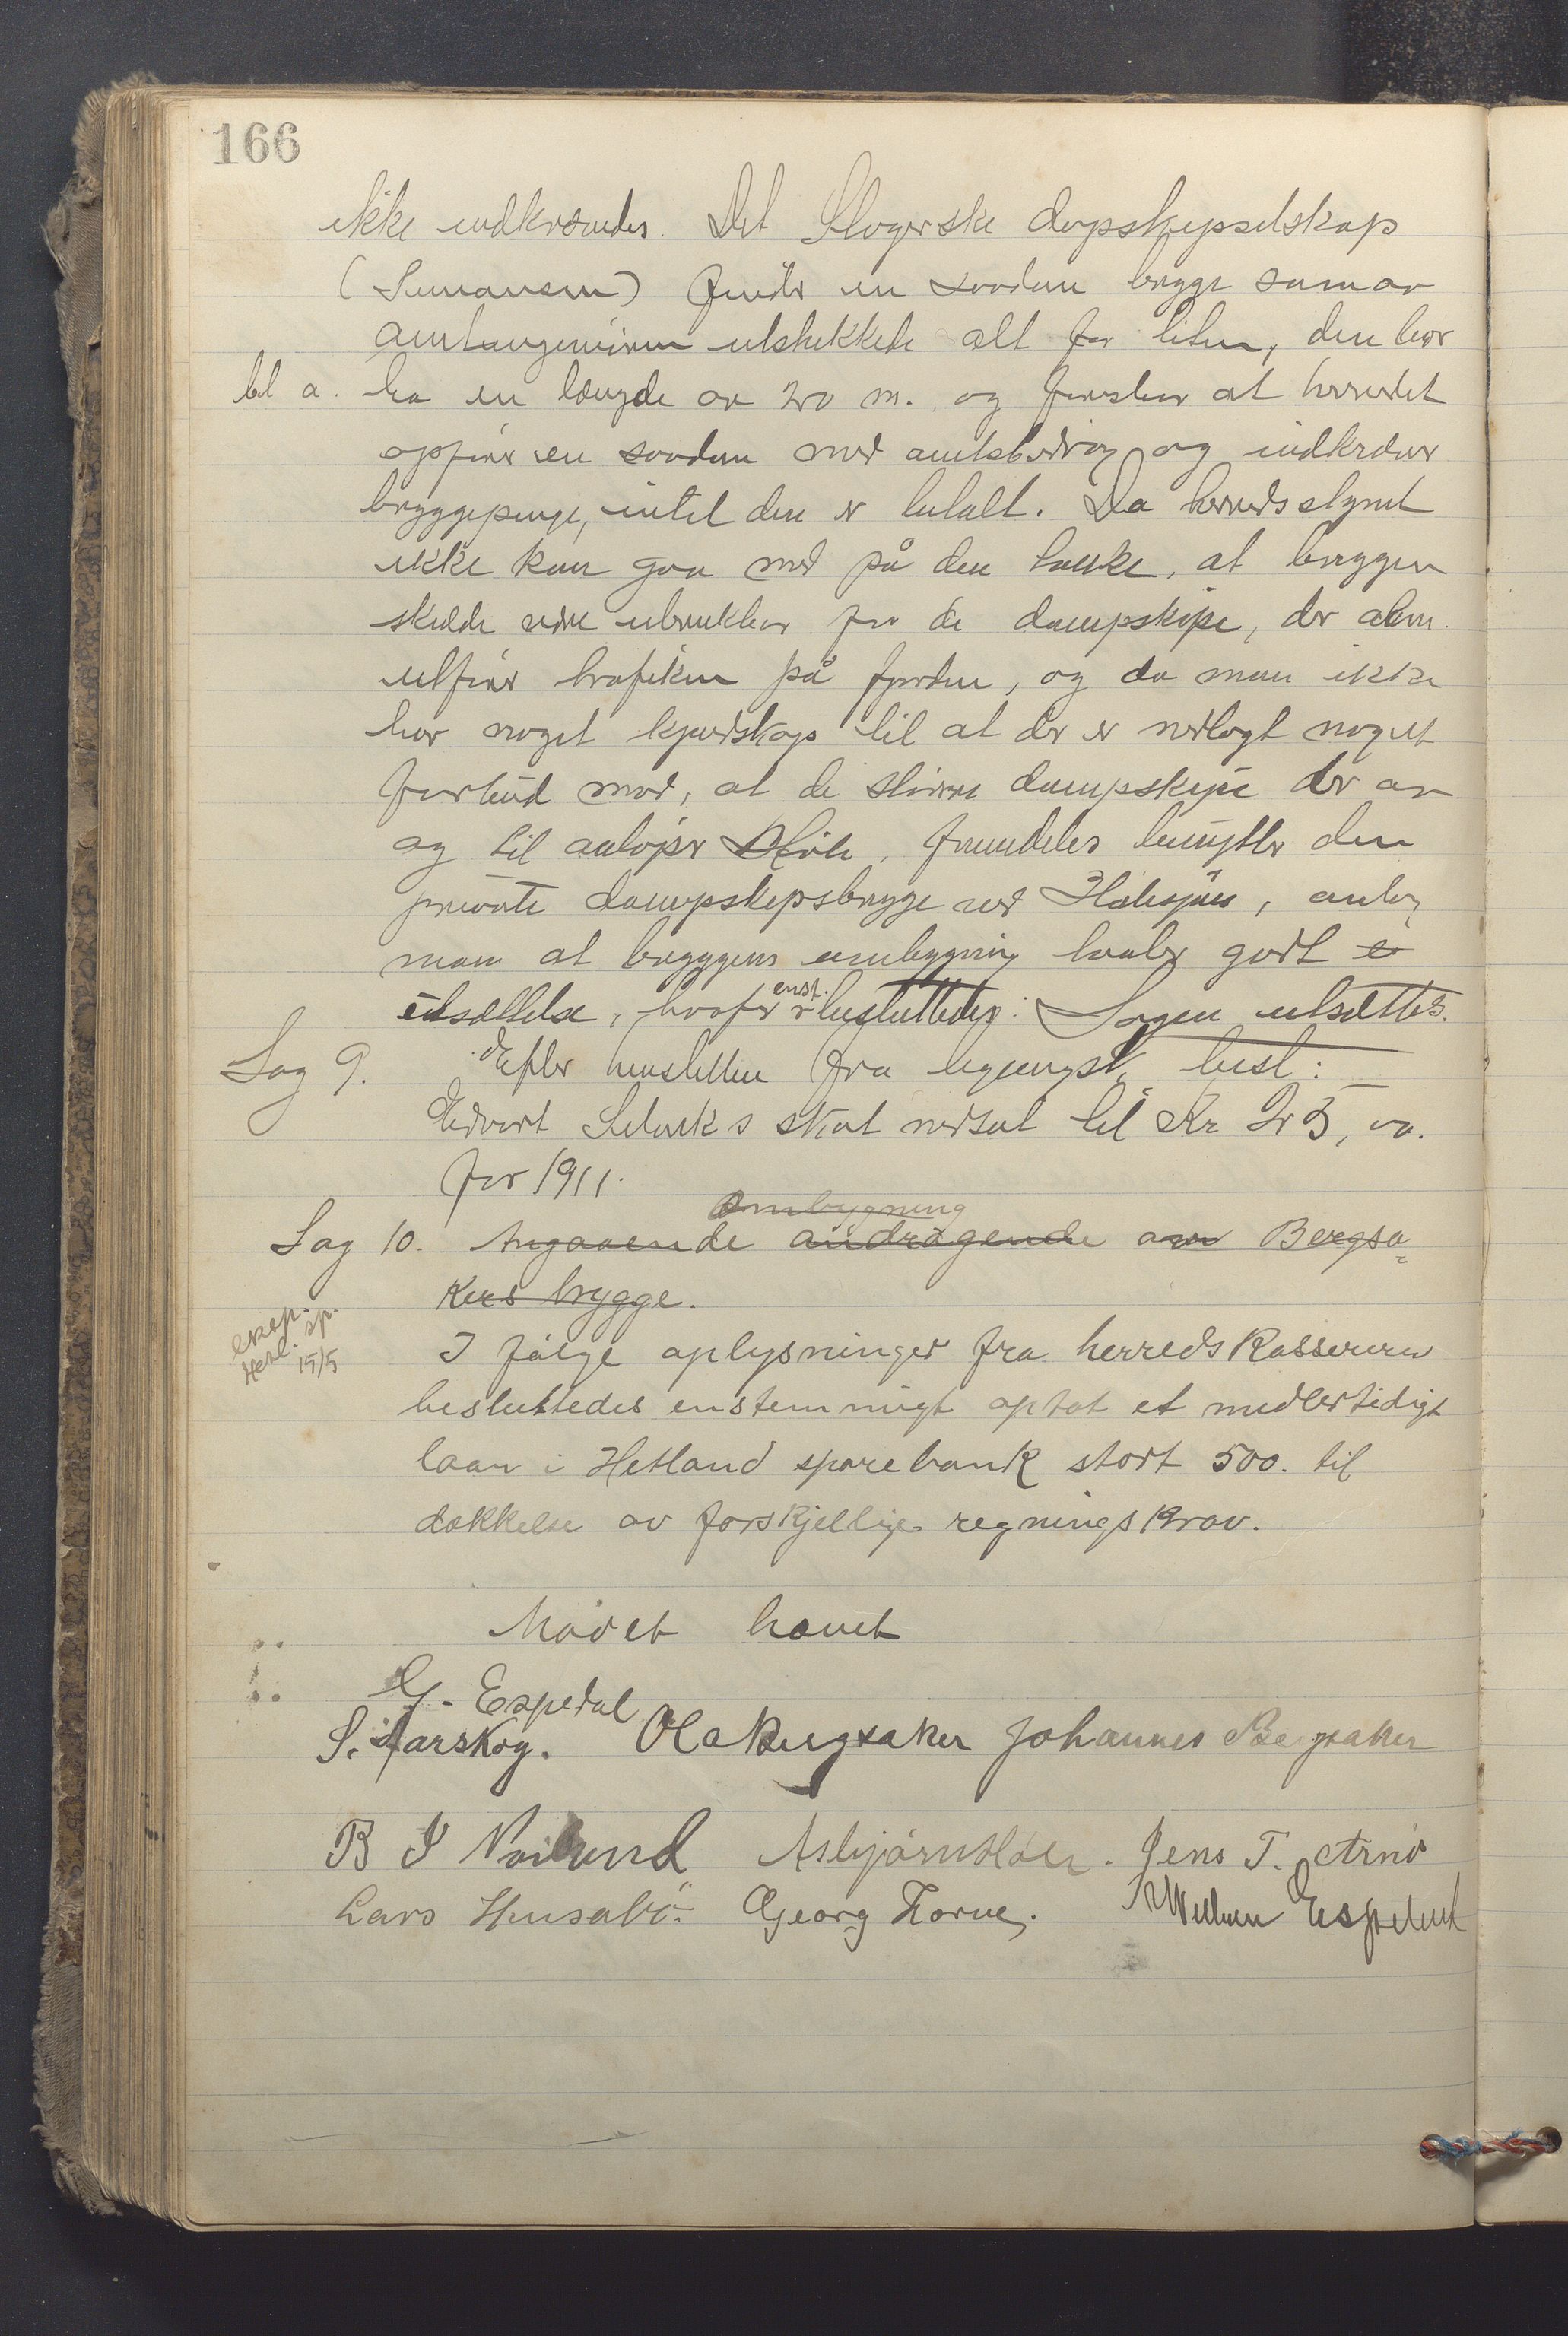 166
ikke indkrævdes. Det Stavgerske dapskipsselskap
(Simonsen) finder en saadan brygge som av
amtsingeniøren utstikkede alt for liten, den bør
bl a. ha en længde av 20 m. og foreslaar at herredet
opfører en saadan med amtsbidrag og indkræver
bryggepenge, intil den er betalt. Da herredsstyret
ikke kan gaa med på den tanke, at bryggen
skulde være ubrukbar for de dampskipe, der alm.
utfører trafiken på fjorden, og da man ikke
har noget kjendskap til at der er nedlagt noget
forbud mod, at de større dampskipe der av
og til anløper Høle, fremdeles benytter den
private dampskipsbrygge ved Hølesjøen, antar
man at bryggens ombygning taaler godt
utsættelse, hvorfor enst. besluttedes: Sagen utsættes.
Sag 9. Efter henstillen fra ligningsk. besl:
Edvart Selviks skat nedsat til Kr 25, oo.
for 1911.
ombygning
Sag 10. Angaaende andragende om Bergsa=
kers brygge.
exsp.
Hetl. sp.
15/5
I følge oplysninger fra herredskassereren
besluttedes enstemmigt optat et midlertidigt
laan i Hetland sparebank stort 500. til
dækkelse av forskjellige regningskrav.
Mødet hævet
G. Espedal
S. Aarskog. Ola Bergsaker Johannes Bergsaker
B I Norlund Asbjørn Høle. Jens T. Arnø
Lars Husabø. Georg Torne. Willum Espeland